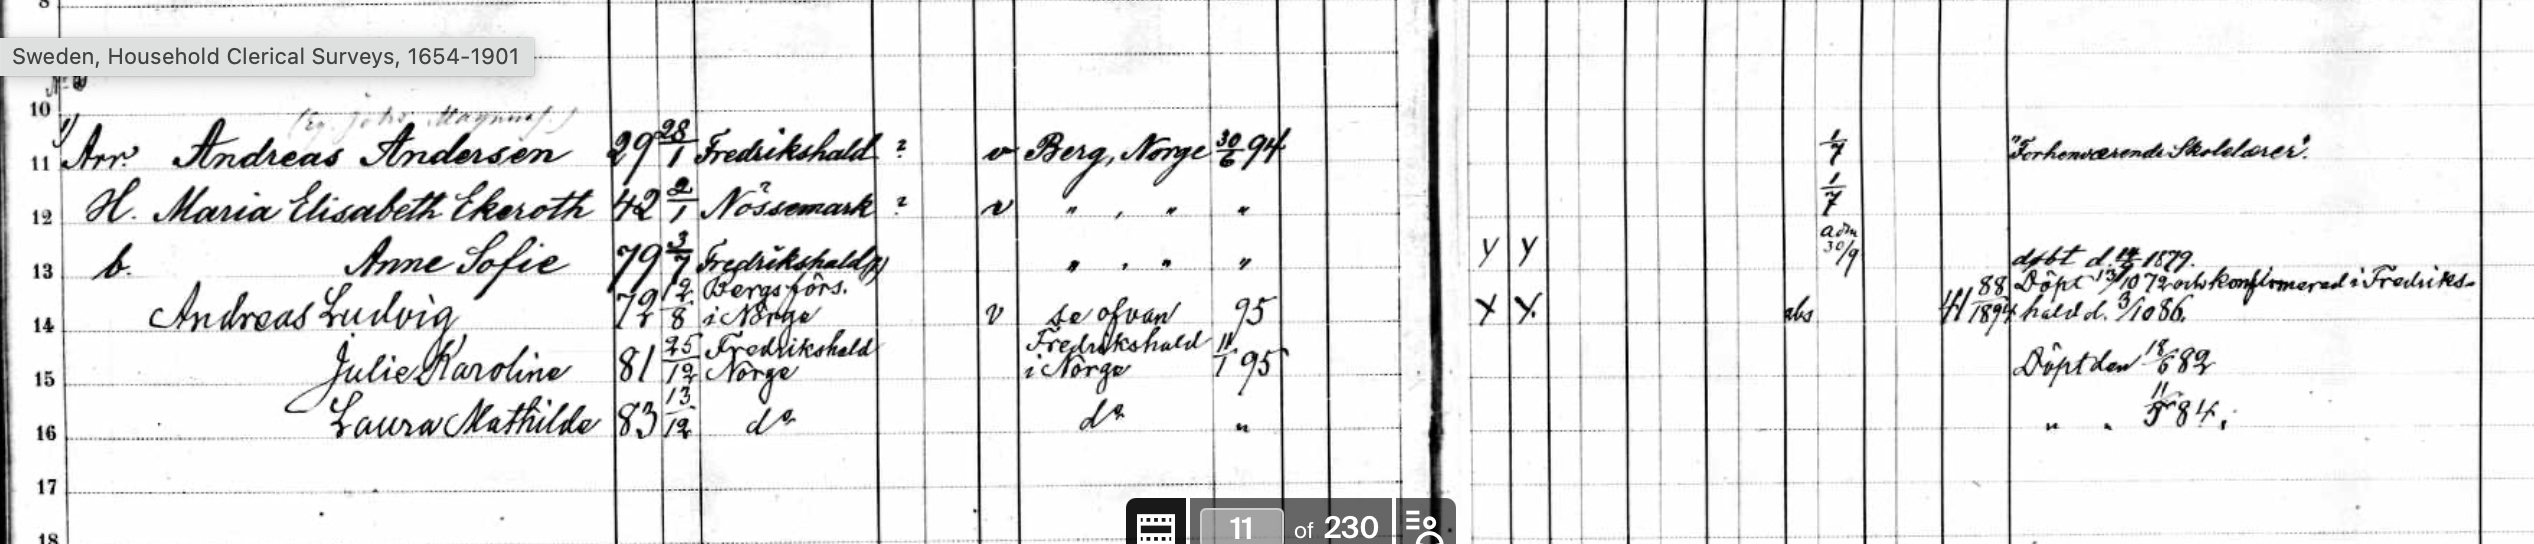 8
Sweden, Household Clerical Surveys, 1654-1901
10
11 Arr. Andreas Andersen 29 28/1 Fredrikshald ? v Berg, Norge 30/6 94 1/7 "Forhenværende Skolelærer".
12 H. Maria Elisabeth Ekeroth 42 2/1 Nössemark ? v " , " " 1/7
13 b. Anne Sofie 79 3/7 Fredrikshald (?) " , " " y y adm 30/9 døbt d. 14/9 1879.
14 Andreas Ludvig 72 12/8 Bergs förs. i Norge v se ofvan 95 X X. abs 41 88/1894 Döpt 13/10 72 och konfirmerad i Fredriks-
hald d. 3/10 86.
15 Julie Karoline 81 25/12 Fredrikshald Norge Fredrikshald i Norge 11/1 95 Döpt den 18/6 82
16 Laura Mathilde 83 13/12 do do " " " 11/5 84.
17
18
11 of 230